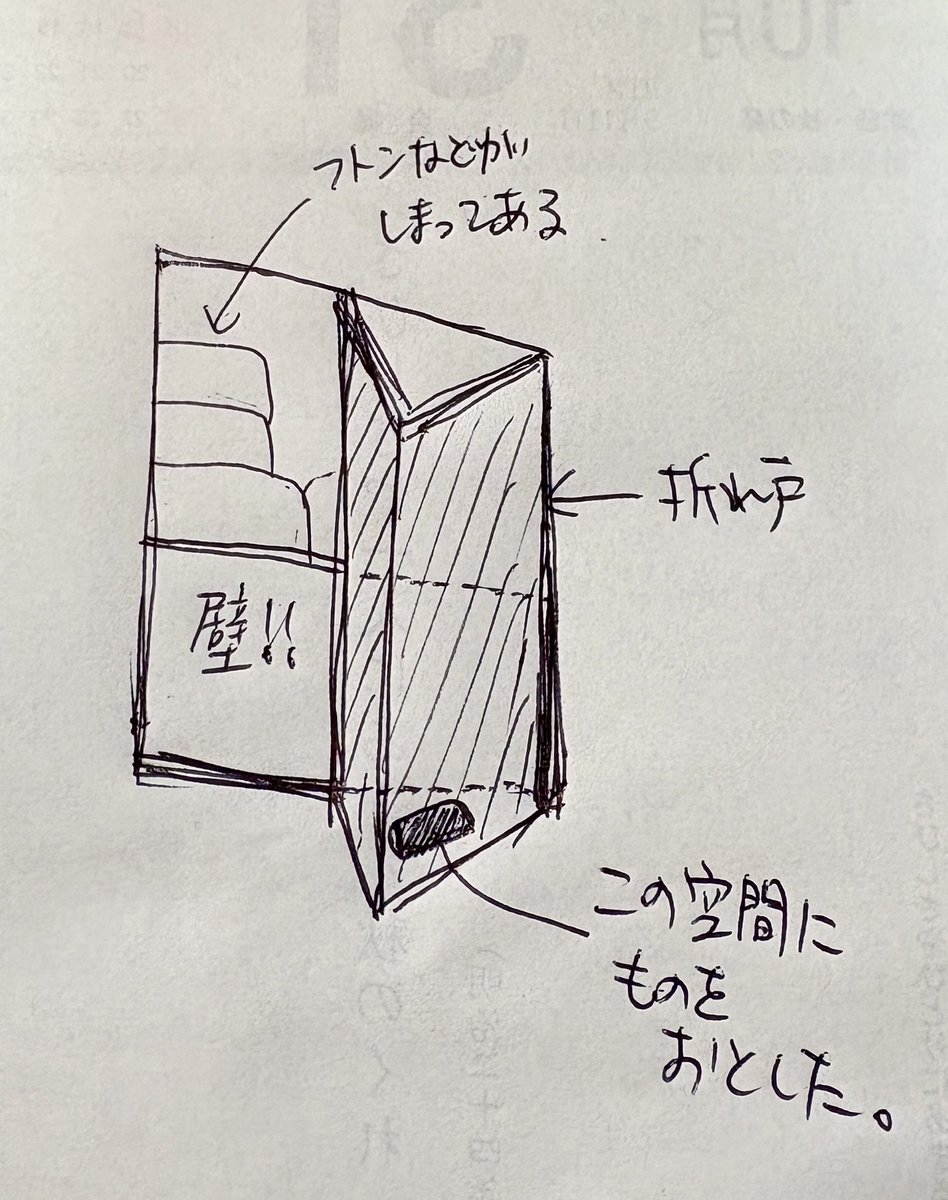 フトンなどが
しまってある
折れ戸
壁!!
この空間に
ものを
おとした。